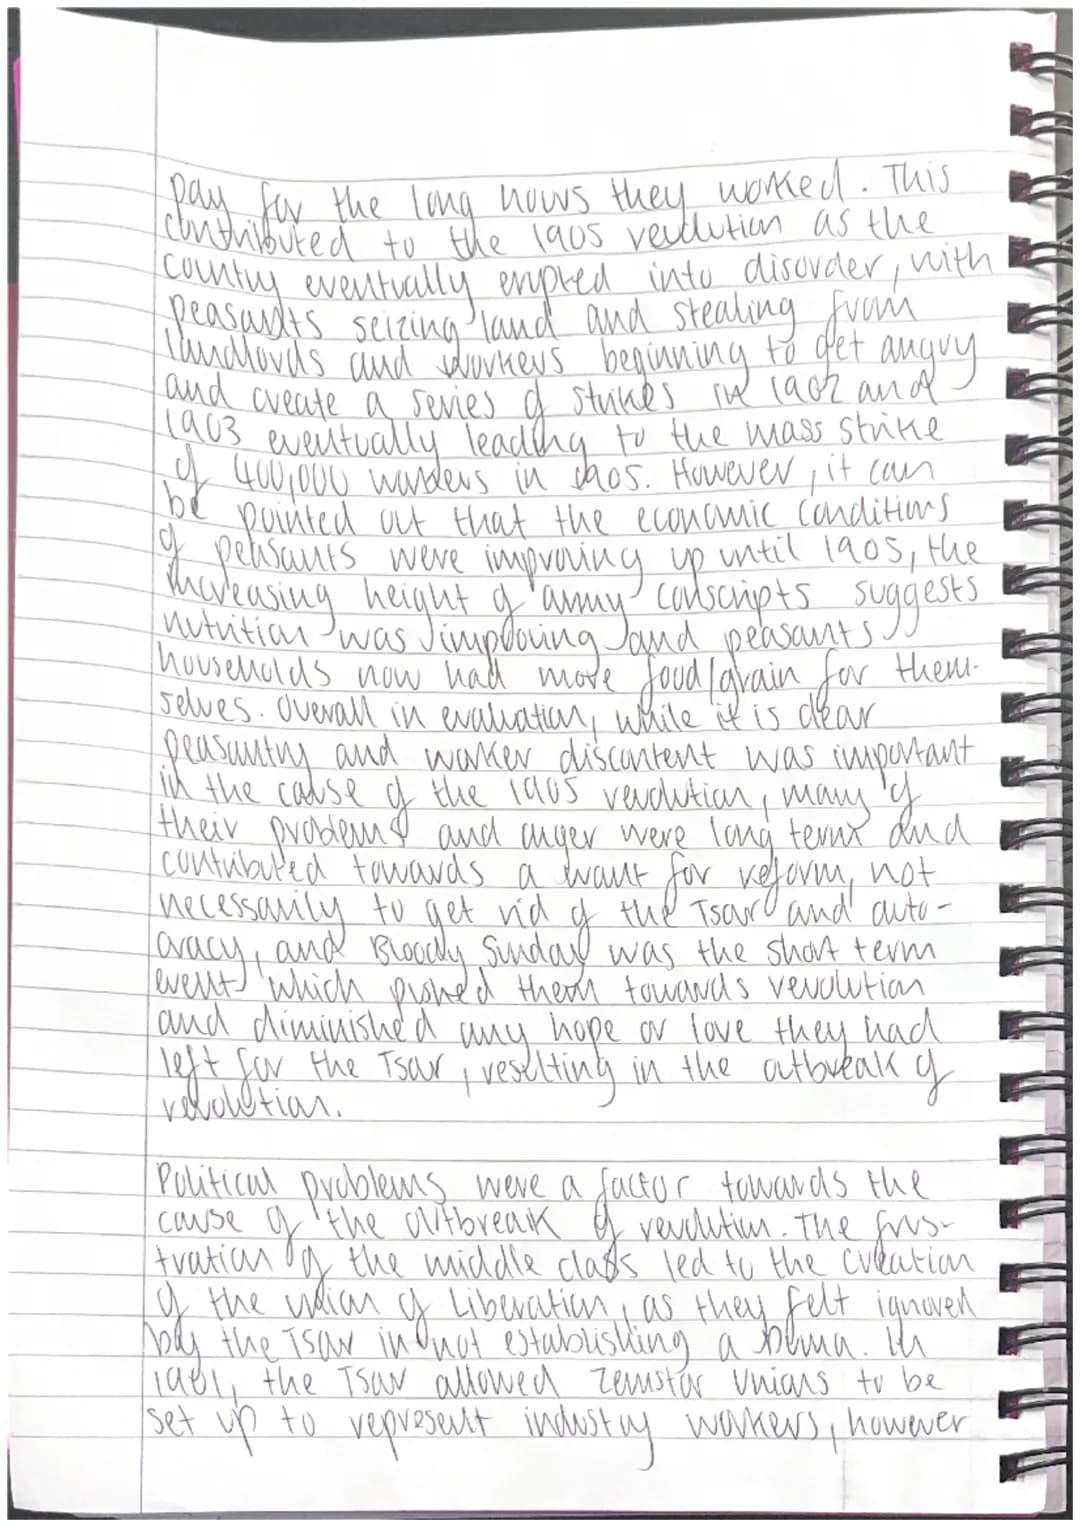 pay for the long hours they worked. This
contributed to the 1905 revolution as the
country eventually erupted into disorder, with
peasants seizing land and stealing from
landlords and workers beginning to get angry
and create a series of strikes in 1902 and
1903 eventually leading to the mass strike
of 400,000 workers in 1905. However, it can
be pointed out that the economic conditions
of peasants were improving up until 1905, the
increasing height of army conscripts suggests
nutrition was improving and peasants
households now had more food/grain for them-
selves. Overall in evaluation, while it is clear
peasantry and worker discontent was important
in the cause of the 1905 revolution, many of
their problems and anger were long term and
contributed towards a want for reform, not
necessarily to get rid of the Tsar and auto-
cracy, and Bloody Sunday was the short term
event which pushed them towards revolution
and diminished any hope or love they had
left for the Tsar, resulting in the outbreak of
revolution.
Political problems were a factor towards the
cause of the outbreak of revolution. The frus-
tration of the middle class led to the creation
of the union of Liberation, as they felt ignored
by the Tsar in not establishing a Duma. In
1901, the Tsar allowed Zemstar Unions to be
set up to represent industry workers, however